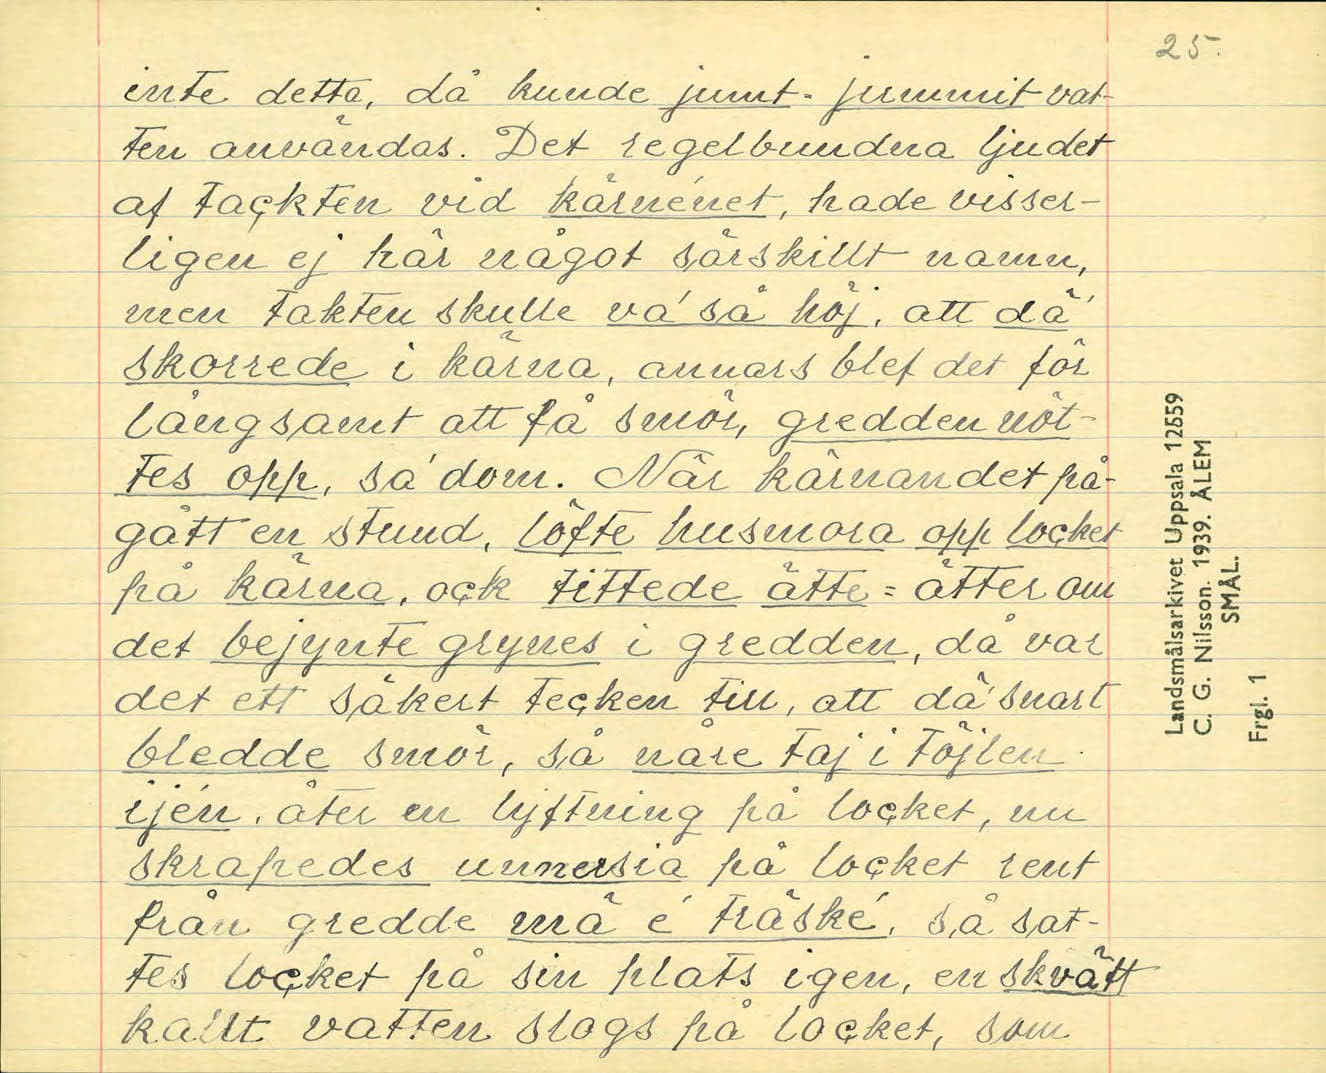 25.
inte detta, då kunde jumt = jummit vat-
ten användas. Det regelbundna ljudet
af tackten vid kärnénet, hade visser-
ligen ej här något särskillt namn,
men takten skulle va' så höj, att dä'
skorrede i kärna, annars blef det för
långsamt att få smör, gredden nöt-
tes opp, sa' dom. När kärnandet på-
gått en stund, löfte husmora opp locket
på kärna, ock tittede ätte = åtter om
det bejynte grynes i gredden, då var
det ett säkert tecken till, att dä' snart
bledde smör, så nåre taj i töjlen
ijén, åter en lyftning på locket, nu
skrapedes unnersia på locket rent
från gredde mä é träské, så sat-
tes locket på sin plats igen, en skvätt
kallt vatten slogs på locket, som
Landsmålsarkivet Uppsala 12559
C. G. Nilsson. 1939. ÅLEM
SMÅL.
Frgl. 1